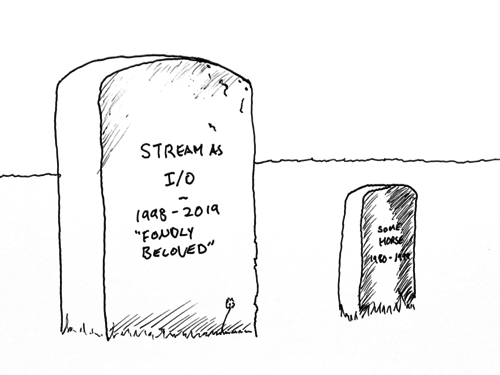 STREAM AS
I/O
~
1998-2019
"FONDLY
BELOVED"
SOME
HORSE